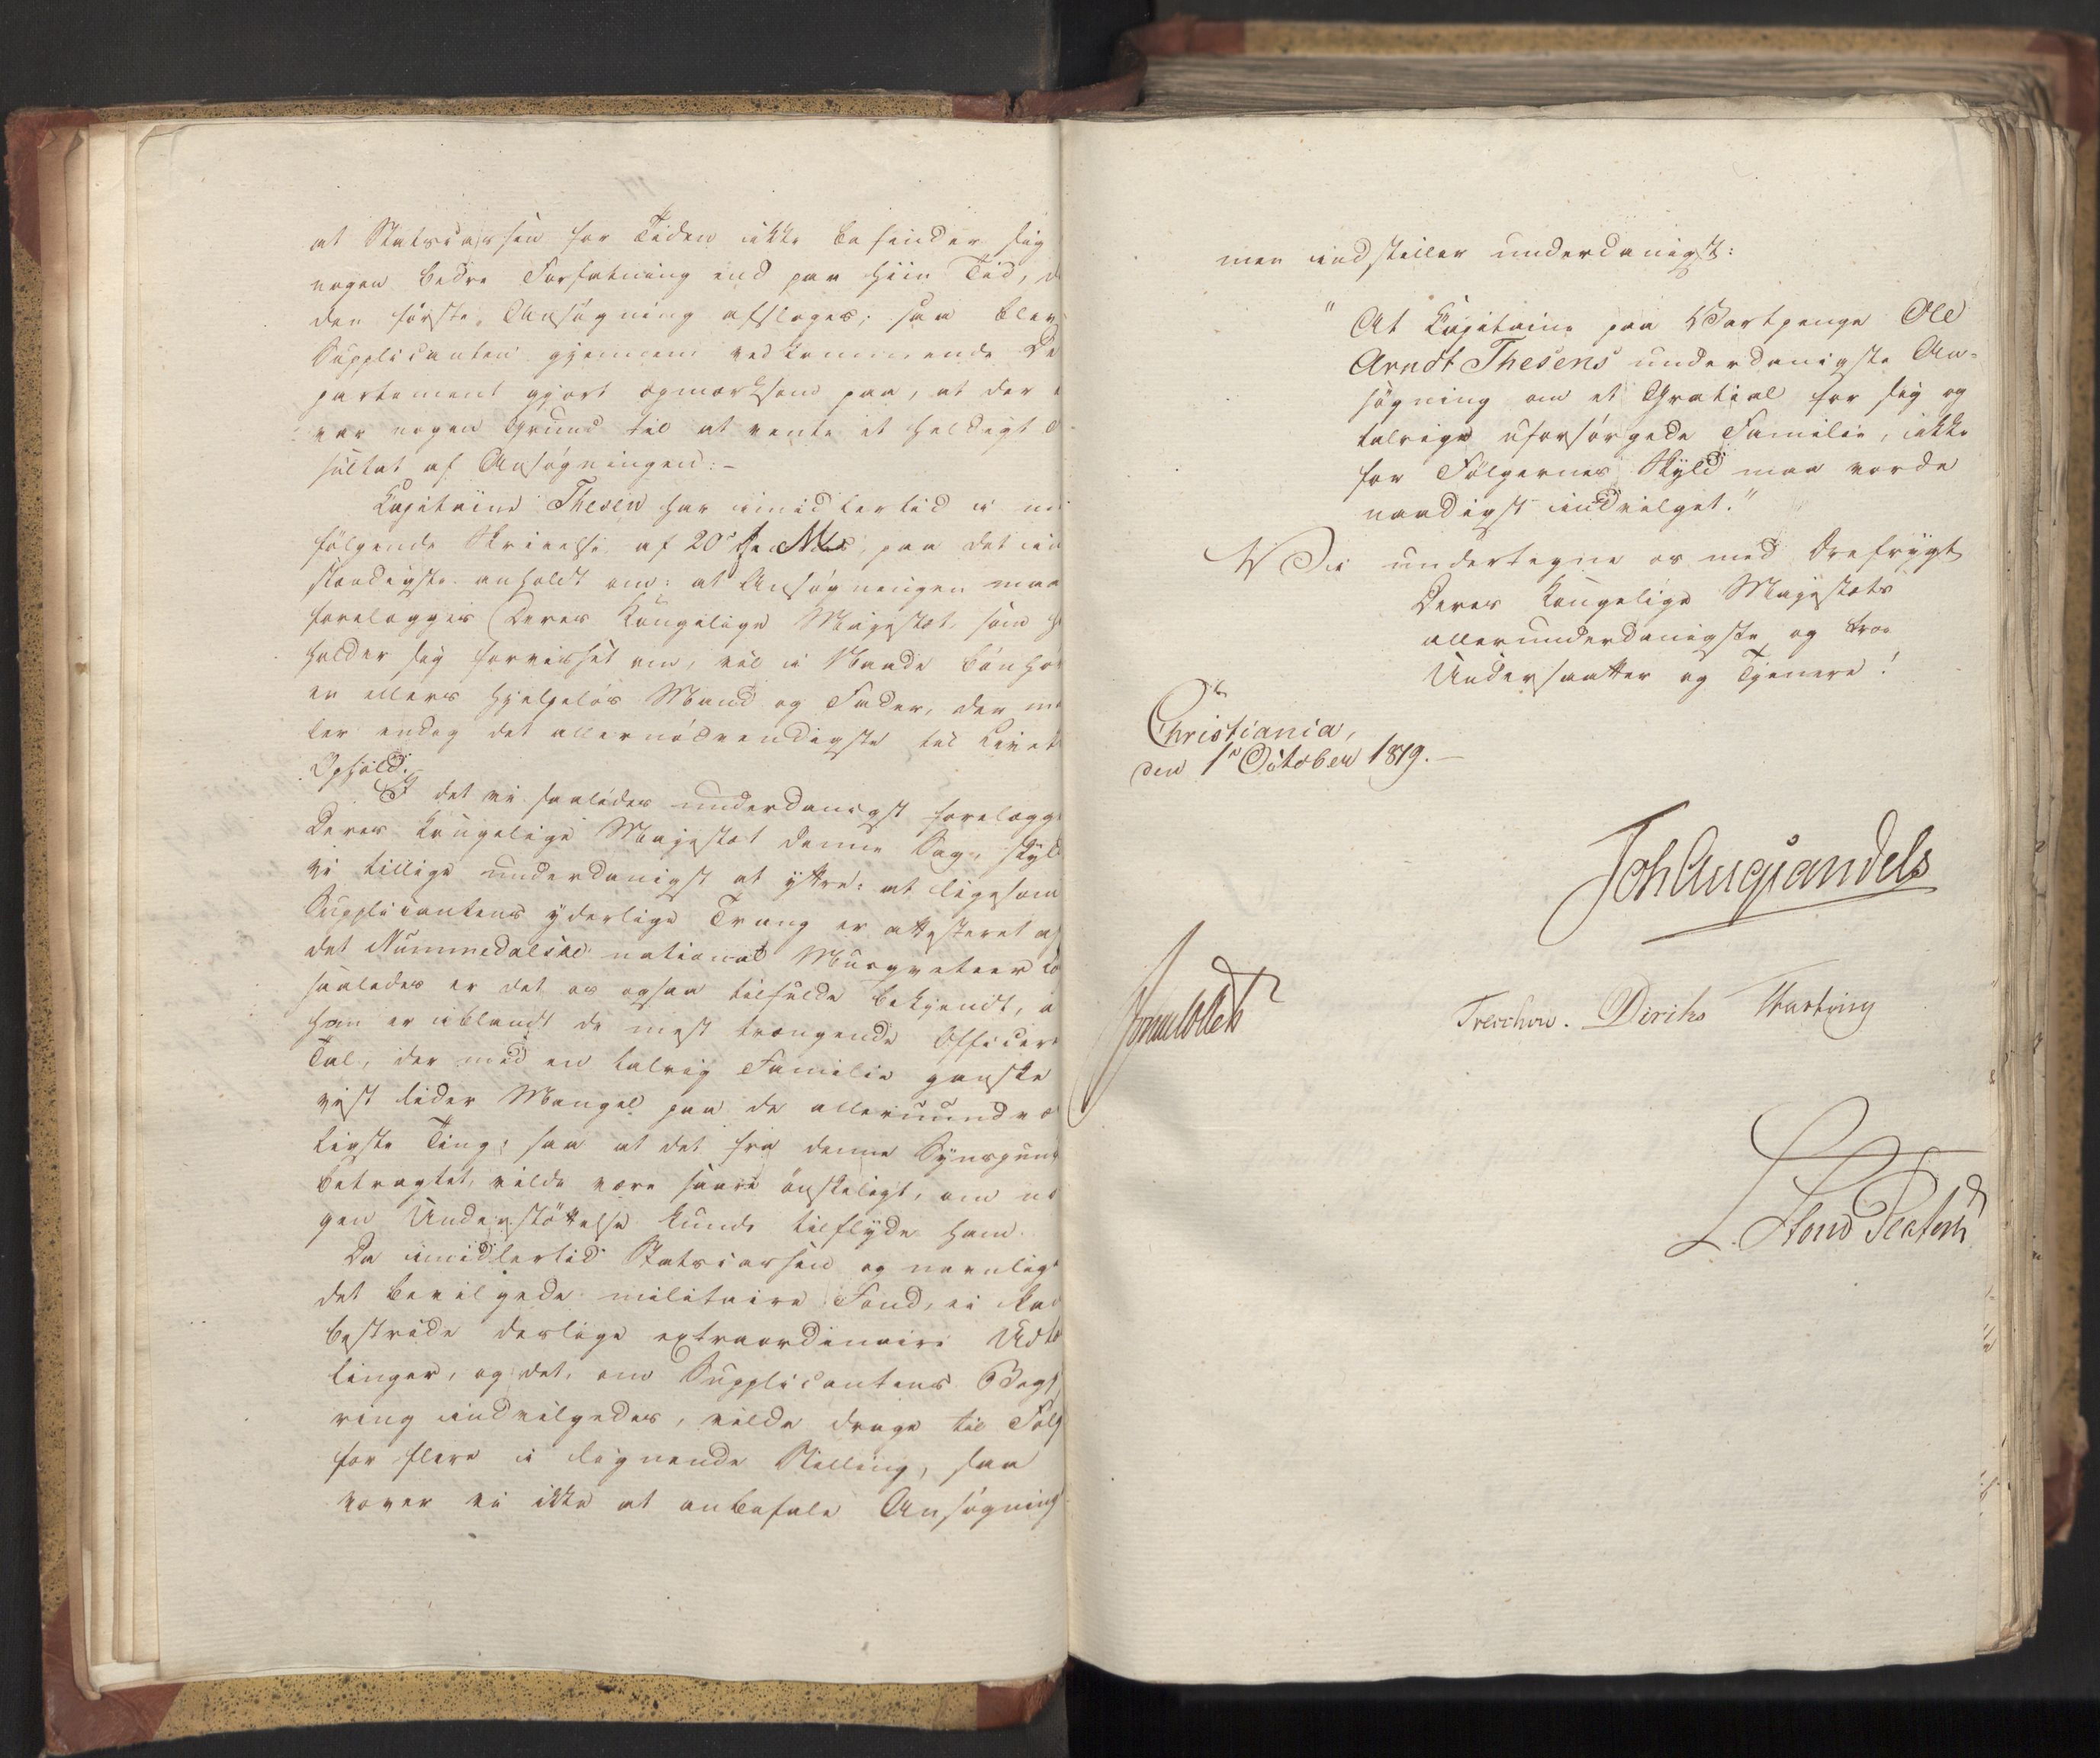 at Statscassen for Tiden ikke befinder sig
nogen bedre Forfatning end paa hiin Tid, d
den förste Ansögning afsloges; saa blev
Supplicanten gjennem vedkommende De
partement gjort opmærksom paa, at der
var nogen Grund til at vente et heldigt
sultat af Ansögningen:-
Capitaine Thesen har imidlertid i
fölgende Skrivelse af 20de f. M. paa det in
stændigste anholdt om: at Ansögningen maa
forelægges Deres Kongelige Majestæt, som h
holder sig forvisset om, vil i Naade bönhör
en ellers hjelpelös Mand og Fader, der
ler endog det allernödvendigste til Livets
Ophold.
I det vi saaledes underdanigst forelægge
Deres Kongelige Majestæt denne Sag, skyld
vi tillige underdanigst at yttre: at ligesom
Supplicantens yderlige Trang er attesteret af
det Nummedalske national Musqveteer Co
saaledes er det os ogsaa tilfulde bekjendt, a
han er iblandt de mest trængende Officer
Tal, der med en talrig Familie ganske
vist lider Mangel paa de alleruundvæ
ligste Ting; saa at det fra denne Synspunk
betragtet, vilde være saare önskeligt, om no
gen Understöttelse kunde tilflyde ham.
Da imidlertid Statscassen og navnligt
det bevilgede militaire Fond, ei kan
bestride deslige extraordinaire Udtæ
linger, og det, om Supplicantens Begj
ring indvilgedes, vilde drage til Fölg
for flere i lignende Stilling, saa
vover vi ikke at anbefale Ansögning
men indstiller underdanigst:
"At Capitaine paa Vartpenge Ole
Arndt Thesens underdanigste An-
sögning om et Gratial for sig og
talrige uforsörgede Familie, ikke
for Fölgernes Skyld maa vorde
naadigst indvilget."
Vi undertegne os med Ærefrygt
Deres Kongelige Majestæts
allerunderdanigste og troe
Undersaatter og Tjenere!
Christiania,
den 1e October 1819.-
Joh Aug Sandels
Sommerfeldt
Treschow. Diriks Fasting
L. Stoud Platou